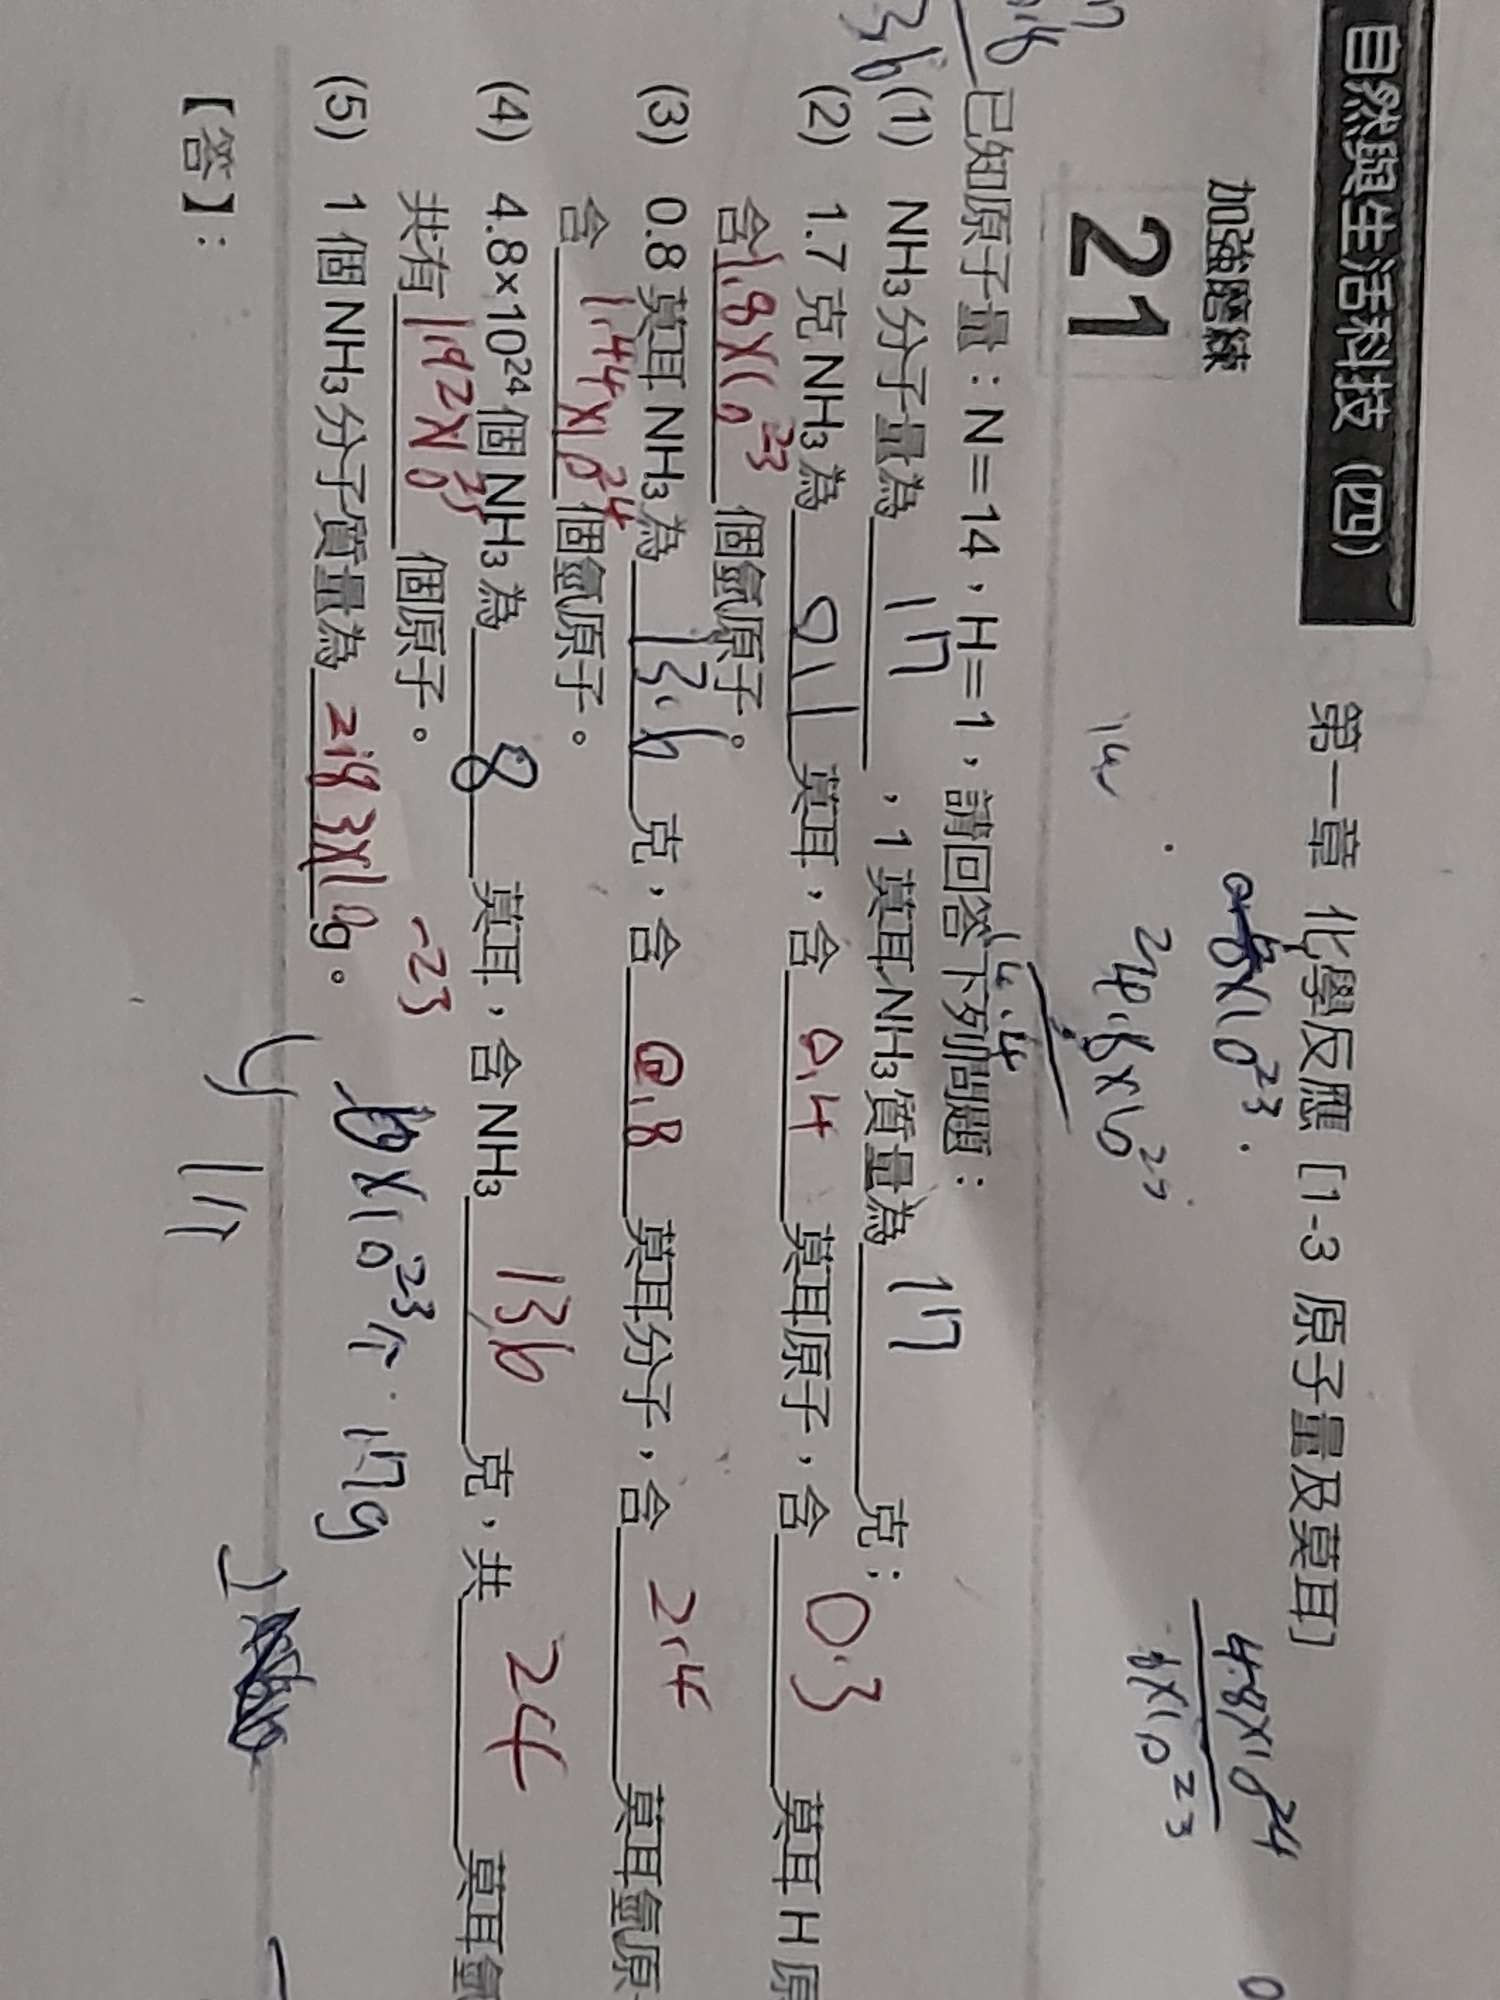 自然與生活科技（四） 第一章 化學反應［1-3 原子量及莫耳］
加強磨練
21
×10²³
4.8×10²⁴
6×10²³
14.4
已知原子量：N＝14，H＝1，請回答下列問題：
(1) NH₃分子量為 17 ，1 莫耳 NH₃質量為 17 克；
(2) 1.7 克 NH₃為 0.1 莫耳，含 0.4 莫耳原子，含 0.3 莫耳 H 原
含 1.8×10²³ 個氫原子。
(3) 0.8 莫耳 NH₃為 13.6 克，含 0.8 莫耳分子，含 2.4 莫耳氫原
含 1.44×10²⁴ 個氫原子。
(4) 4.8×10²⁴個 NH₃為 8 莫耳，含 NH₃ 136 克，共 24 莫耳氫
共有 192×10²³ 個原子。
(5) 1 個 NH₃分子質量為 2.83×10⁻²³ g。
6×10²³个 17g
【答】：